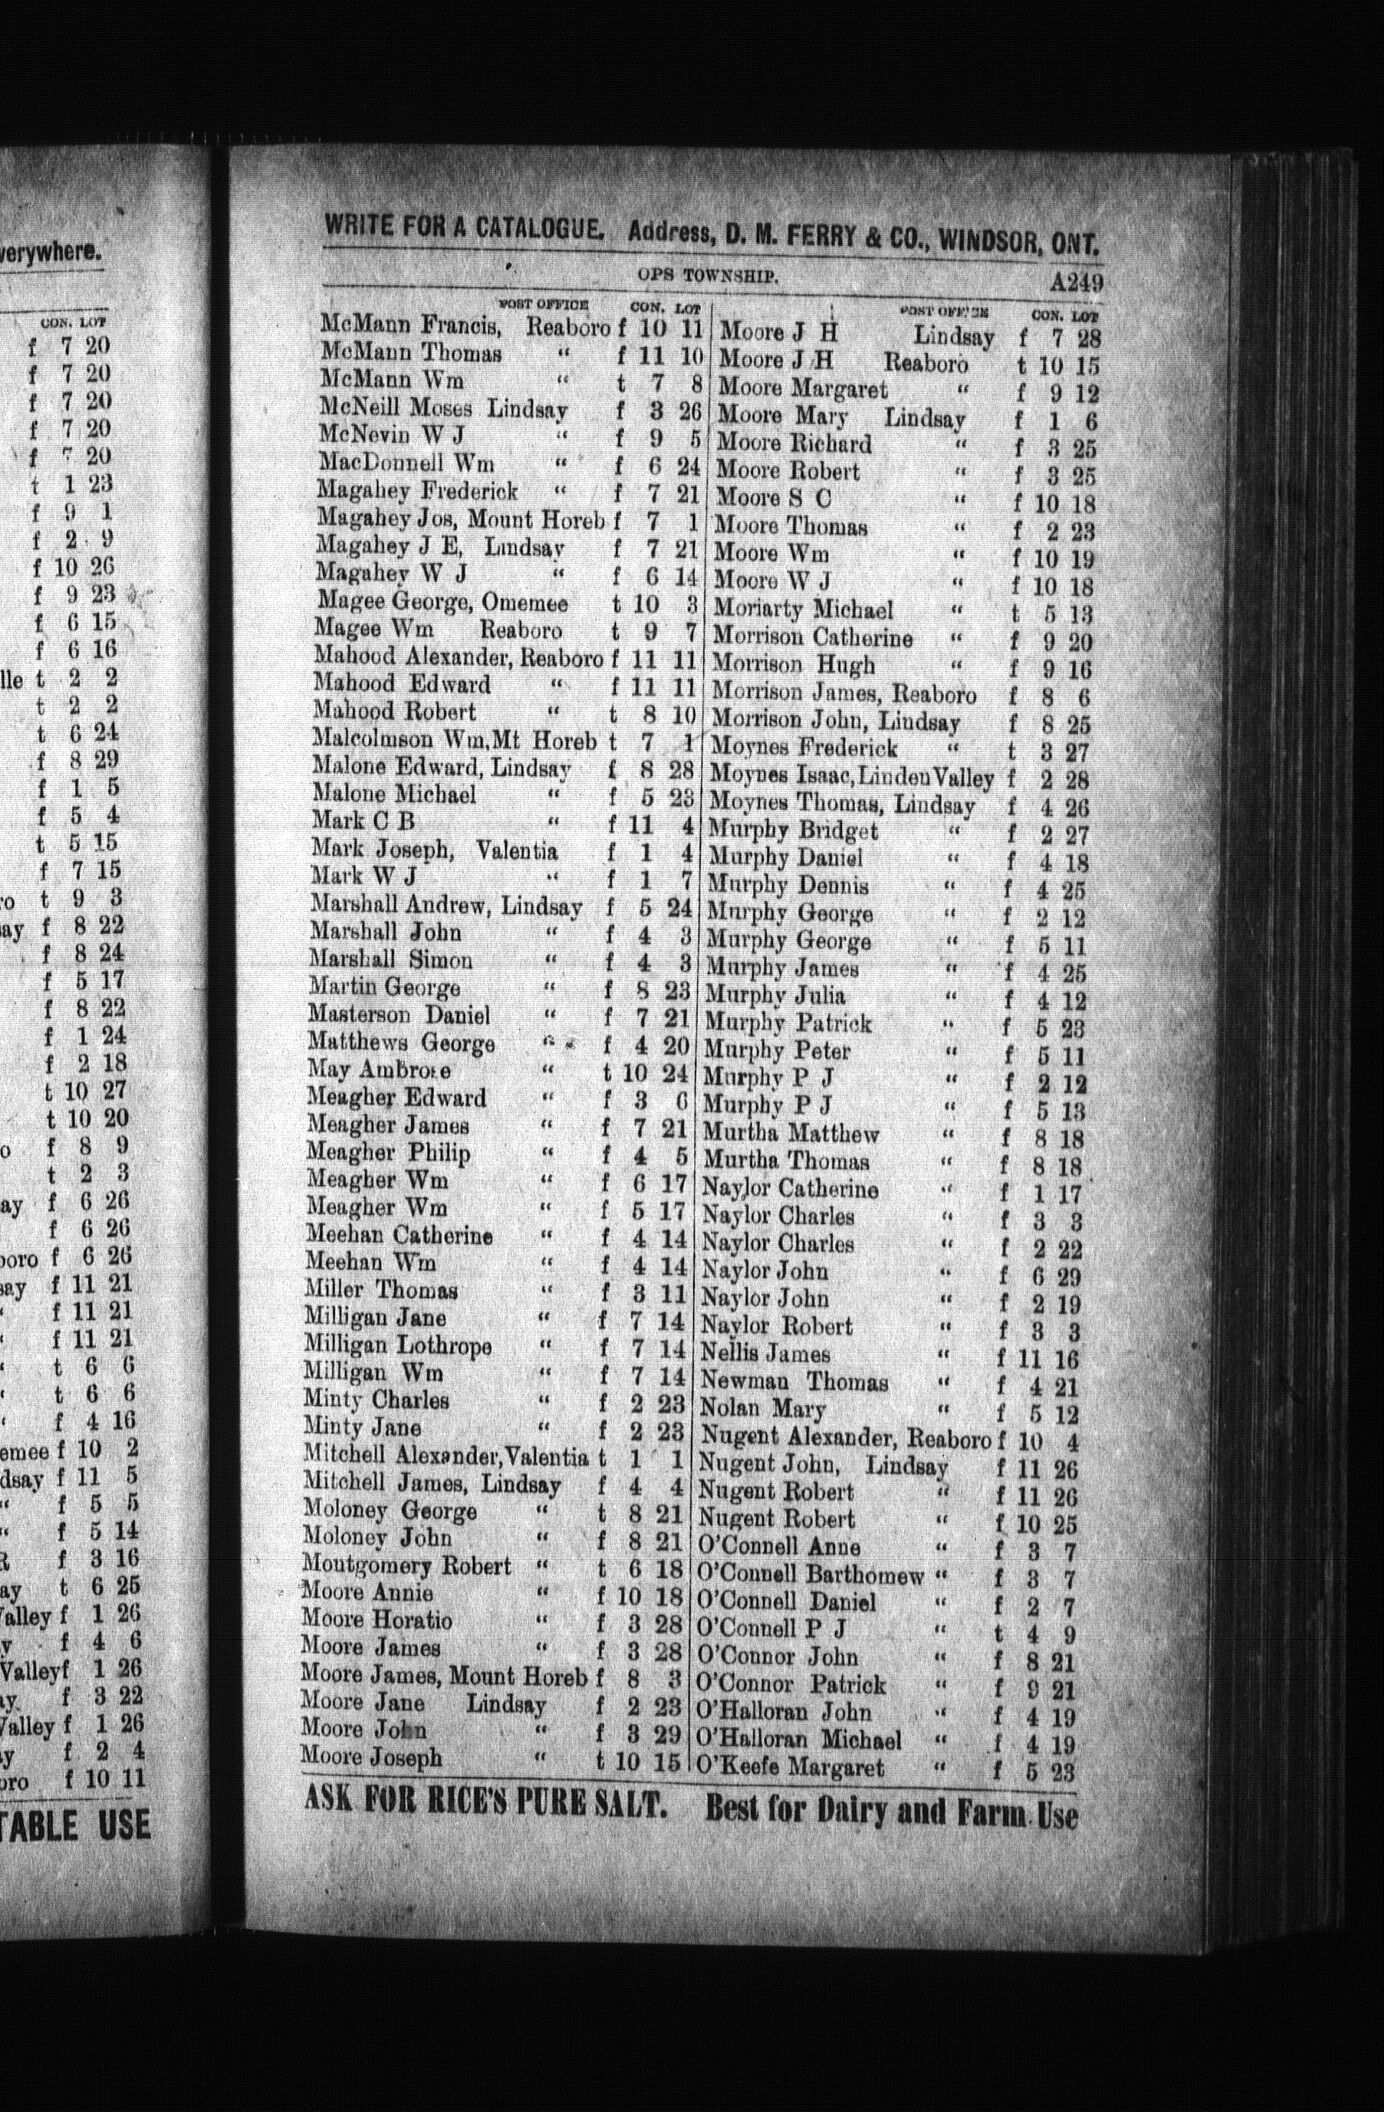 verywhere.
CON. LOT
f 7 20
f 7 20
f 7 20
f 7 20
f 20
t 1 23
f 9 1
f 2 9
f 10 26
f 9 23
f 6 15
f 6 16
lle t 2 2
t 2 2
t 6 24
f 8 29
f 1 5
f 5 4
t 5 15
f 7 15
ro t 9 3
ay f 8 22
f 8 24
f 5 17
f 8 22
f 1 24
f 2 18
t 10 27
t 10 20
o f 8 9
t 2 3
ay f 6 26
f 6 26
boro f 6 26
say f 11 21
“ f 11 21
“ f 11 21
“ t 6 6
“ t 6 6
“ f 4 16
emee f 10 2
dsay f 11 5
“ f 5 5
“ f 5 14
R f 3 16
ay t 6 25
Valley f 1 26
y f 4 6
Valley f 1 26
ay. f 3 22
Valley f 1 26
y f 2 4
oro f 10 11
TABLE USE
WRITE FOR A CATALOGUE. Address, D. M. FERRY & CO., WINDSOR, ONT.
OPS TOWNSHIP. A249
POST OFFICE CON. LOT
McMann Francis, Reaboro f 10 11
McMann Thomas “ f 11 10
McMann Wm “ t 7 8
McNeill Moses Lindsay f 3 26
McNevin W J “ f 9 5
MacDonnell Wm “ f 6 24
Magahey Frederick “ f 7 21
Magahey Jos, Mount Horeb f 7 1
Magahey J E, Lindsay f 7 21
Magahey W J “ f 6 14
Magee George, Omemee t 10 3
Magee Wm Reaboro t 9 7
Mahood Alexander, Reaboro f 11 11
Mahood Edward “ f 11 11
Mahood Robert “ t 8 10
Malcolmson Wm, Mt Horeb t 7 1
Malone Edward, Lindsay f 8 28
Malone Michael “ f 5 23
Mark C B “ f 11 4
Mark Joseph, Valentia f 1 4
Mark W J “ f 1 7
Marshall Andrew, Lindsay f 5 24
Marshall John “ f 4 3
Marshall Simon “ f 4 3
Martin George “ f 8 23
Masterson Daniel “ f 7 21
Matthews George “ f 4 20
May Ambrose “ t 10 24
Meagher Edward “ f 3 6
Meagher James “ f 7 21
Meagher Philip “ f 4 5
Meagher Wm “ f 6 17
Meagher Wm “ f 5 17
Meehan Catherine “ f 4 14
Meehan Wm “ f 4 14
Miller Thomas “ f 3 11
Milligan Jane “ f 7 14
Milligan Lothrope “ f 7 14
Milligan Wm “ f 7 14
Minty Charles “ f 2 23
Minty Jane “ f 2 23
Mitchell Alexander, Valentia t 1 1
Mitchell James, Lindsay f 4 4
Moloney George “ t 8 21
Moloney John “ f 8 21
Montgomery Robert “ t 6 18
Moore Annie “ f 10 18
Moore Horatio “ f 3 28
Moore James “ f 3 28
Moore James, Mount Horeb f 8 3
Moore Jane Lindsay f 2 23
Moore John “ f 3 29
Moore Joseph “ t 10 15
POST OFFICE CON. LOT
Moore J H Lindsay f 7 28
Moore J H Reaboro t 10 15
Moore Margaret “ f 9 12
Moore Mary Lindsay f 1 6
Moore Richard “ f 3 25
Moore Robert “ f 3 25
Moore S C “ f 10 18
Moore Thomas “ f 2 23
Moore Wm “ f 10 19
Moore W J “ f 10 18
Moriarty Michael “ t 5 13
Morrison Catherine “ f 9 20
Morrison Hugh “ f 9 16
Morrison James, Reaboro f 8 6
Morrison John, Lindsay f 8 25
Moynes Frederick “ t 3 27
Moynes Isaac, Linden Valley f 2 28
Moynes Thomas, Lindsay f 4 26
Murphy Bridget “ f 2 27
Murphy Daniel “ f 4 18
Murphy Dennis “ f 4 25
Murphy George “ f 2 12
Murphy George “ f 5 11
Murphy James “ f 4 25
Murphy Julia “ f 4 12
Murphy Patrick “ f 5 23
Murphy Peter “ f 5 11
Murphy P J “ f 2 12
Murphy P J “ f 5 13
Murtha Matthew “ f 8 18
Murtha Thomas “ f 8 18
Naylor Catherine “ f 1 17
Naylor Charles “ f 3 3
Naylor Charles “ f 2 22
Naylor John “ f 6 29
Naylor John “ f 2 19
Naylor Robert “ f 3 3
Nellis James “ f 11 16
Newman Thomas “ f 4 21
Nolan Mary “ f 5 12
Nugent Alexander, Reaboro f 10 4
Nugent John, Lindsay f 11 26
Nugent Robert “ f 11 26
Nugent Robert “ f 10 25
O'Connell Anne “ f 3 7
O'Connell Barthomew “ f 3 7
O'Connell Daniel “ f 2 7
O'Connell P J “ t 4 9
O'Connor John “ f 8 21
O'Connor Patrick “ f 9 21
O'Halloran John “ f 4 19
O'Halloran Michael “ f 4 19
O'Keefe Margaret “ f 5 23
ASK FOR RICE'S PURE SALT. Best for Dairy and Farm Use